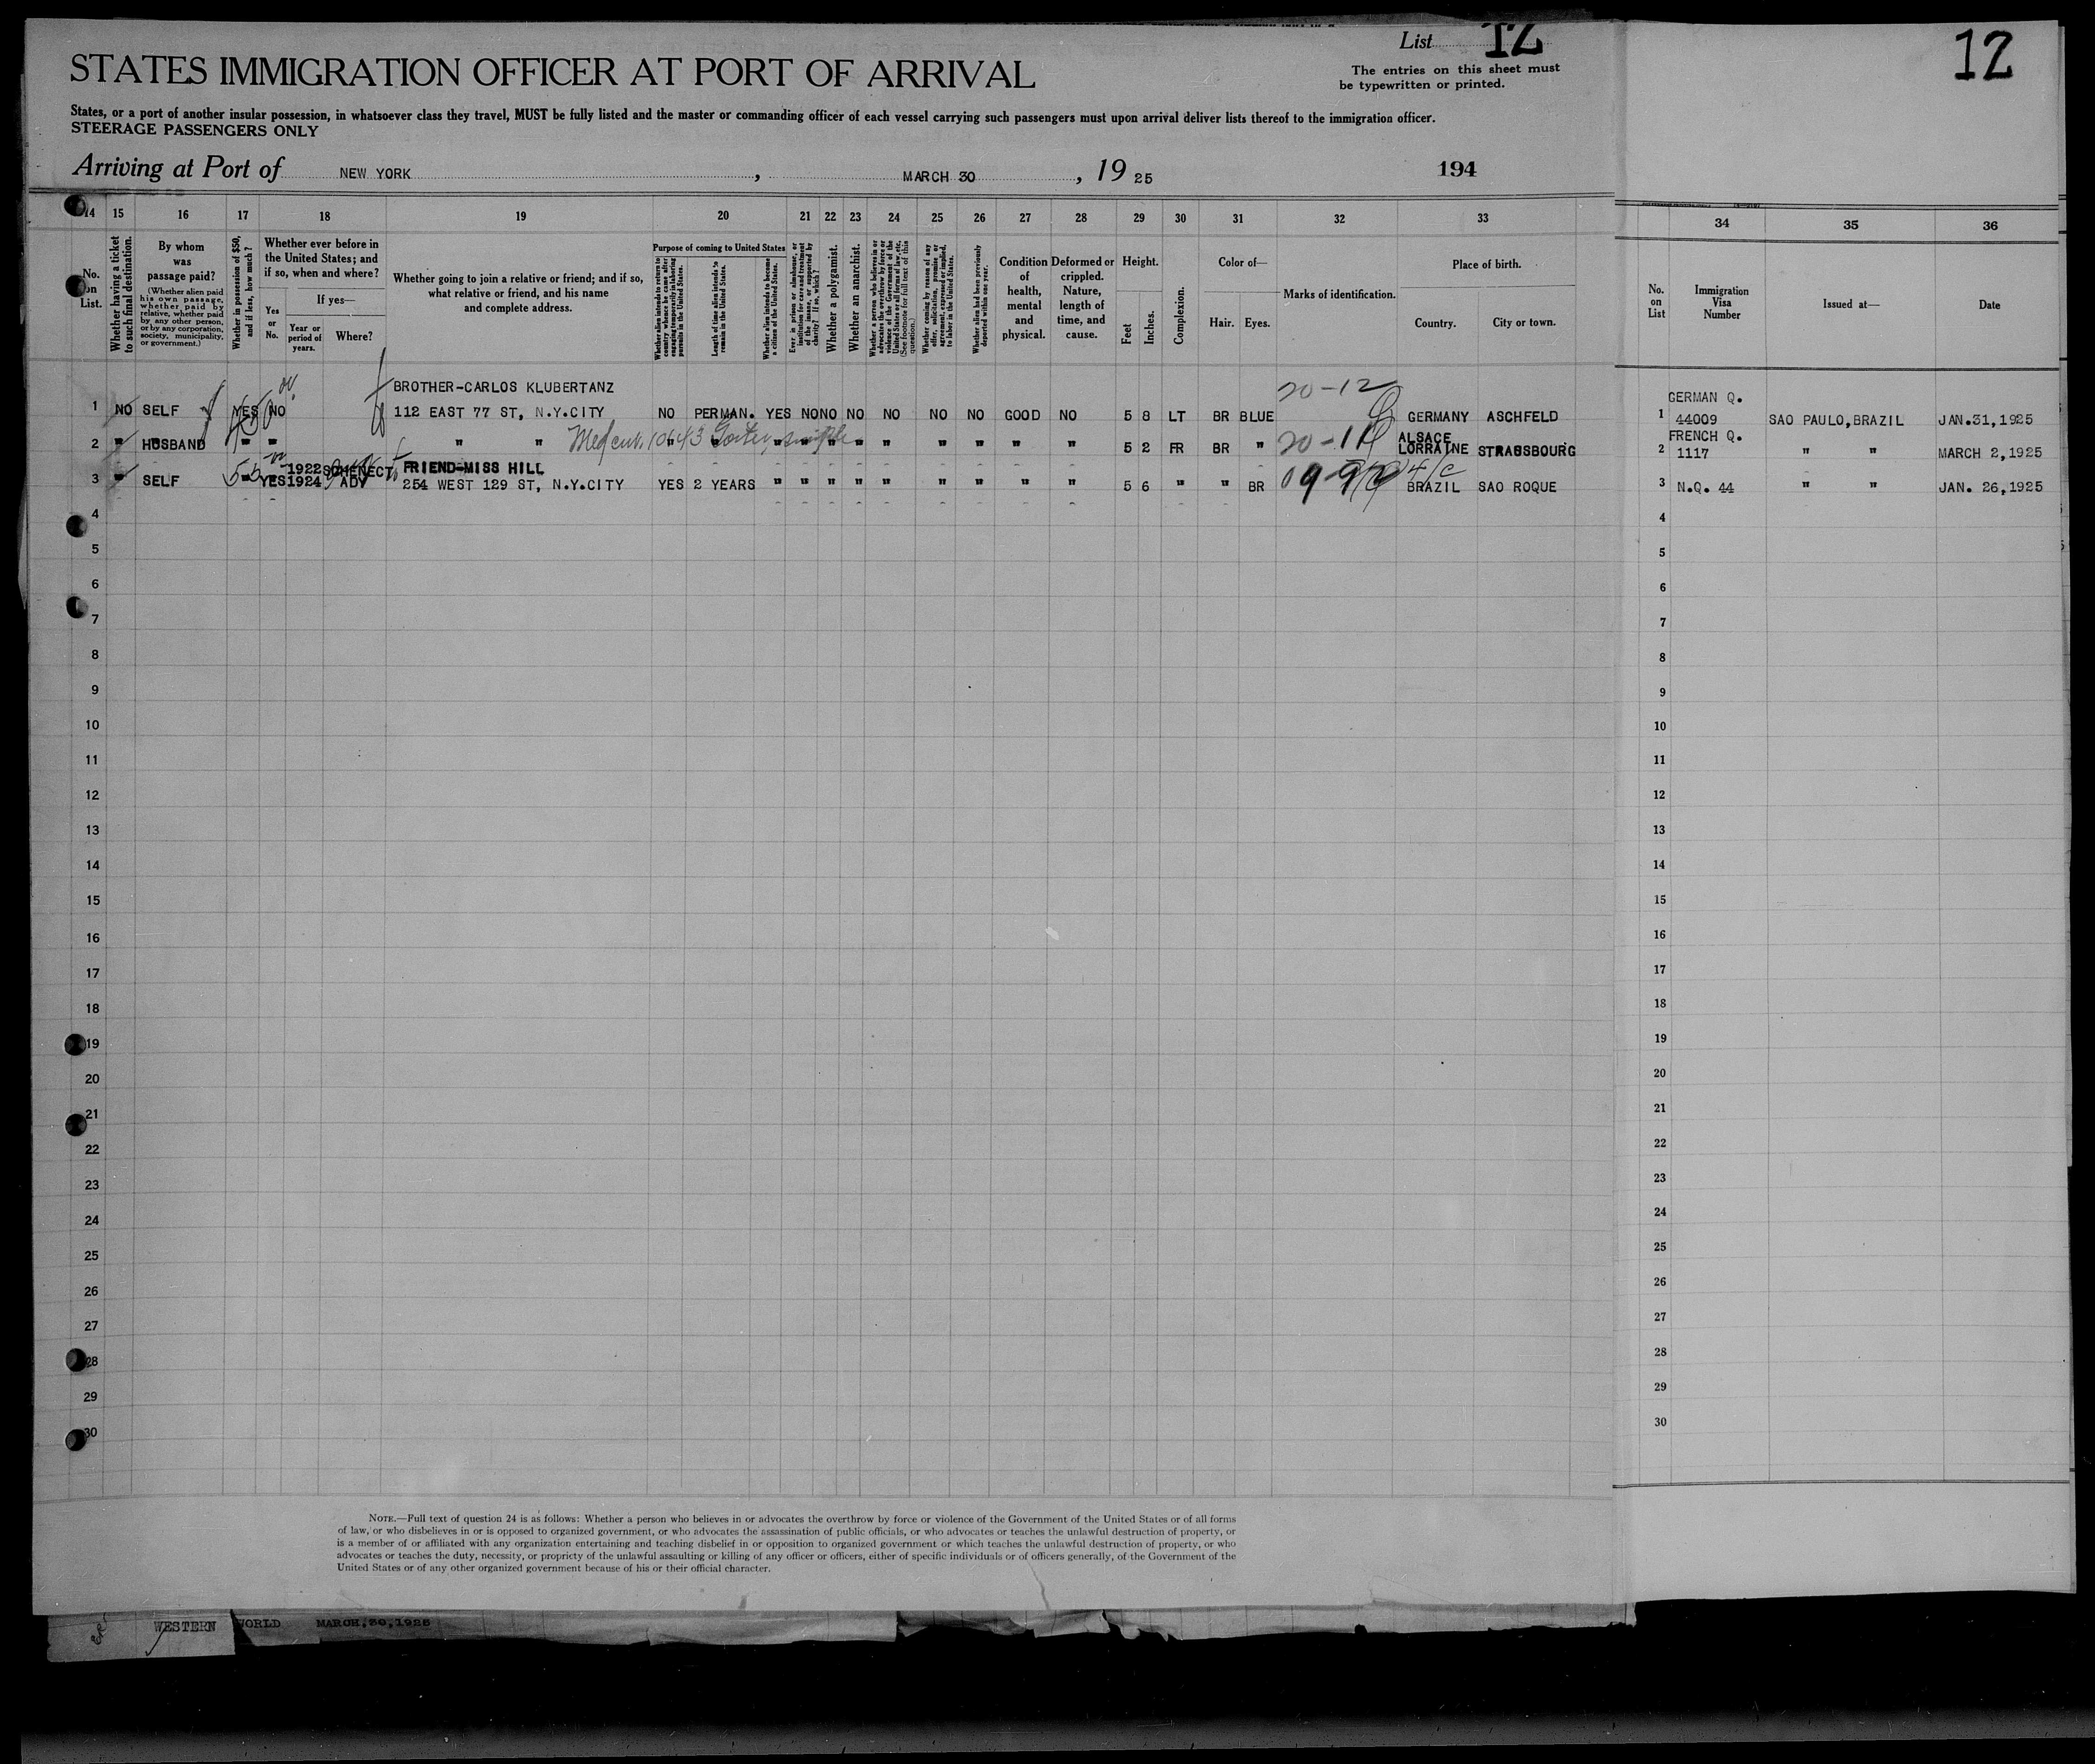 List 12
12
STATES IMMIGRATION OFFICER AT PORT OF ARRIVAL
The entries on this sheet must
be typewritten or printed.
States, or a port of another insular possession, in whatsoever class they travel, MUST be fully listed and the master or commanding officer of each vessel carrying such passengers must upon arrival deliver lists thereof to the immigration officer.
STEERAGE PASSENGERS ONLY
Arriving at Port of NEW YORK, MARCH 30, 19 25
194
14 15 16 17 18 19 20 21 22 23 24 25 26 27 28 29 30 31 32 33 34 35 36
No. on List.
Whether having a ticket to such final destination.
By whom was passage paid?
(Whether alien paid his own passage, whether paid by relative, whether paid by any other person, or by any corporation, society, municipality, or government.)
Whether in possession of $50, and if less, how much?
Whether ever before in the United States; and if so, when and where?
Yes or No.
If yes—
Year or period of years.
Where?
Whether going to join a relative or friend; and if so, what relative or friend, and his name and complete address.
Purpose of coming to United States
Whether alien intends to return to country whence he came after engaging temporarily in laboring pursuits in the United States.
Length of time alien intends to remain in the United States.
Whether alien intends to become a citizen of the United States.
Ever in prison or almshouse, or institution for care and treatment of the insane, or supported by charity? If so, which?
Whether a polygamist.
Whether an anarchist.
Whether a person who believes in or advocates the overthrow by force or violence of the Government of the United States or all forms of law, etc. (See footnote for full text of this question.)
Whether coming by reason of any offer, solicitation, promise or agreement, expressed or implied, to labor in the United States.
Whether alien had been previously deported within one year.
Condition of health, mental and physical.
Deformed or crippled. Nature, length of time, and cause.
Height.
Feet
Inches.
Complexion.
Color of—
Hair. Eyes.
Marks of identification.
Place of birth.
Country. City or town.
No. on List
Immigration Visa Number
Issued at—
Date
BROTHER-CARLOS KLUBERTANZ 20-12 GERMAN Q.
1 NO SELF YES NO 112 EAST 77 ST, N.Y.CITY NO PERMAN. YES NO NO NO NO NO NO GOOD NO 5 8 LT BR BLUE GERMANY ASCHFELD 1 44009 SAO PAULO,BRAZIL JAN.31,1925
ALSACE FRENCH Q.
2 " HUSBAND " " " " " " " " " " " " " " 5 2 FR BR " 20-11 LORRAINE STRASSBOURG 2 1117 " " MARCH 2,1925
1922 SCHENECT FRIEND-MISS HILL
3 " SELF YES 1924 ADY 254 WEST 129 ST, N.Y.CITY YES 2 YEARS " " " " " " " " " 5 6 " " BR BRAZIL SAO ROQUE 3 N.Q. 44 " " JAN. 26,1925
4 4
5 5
6 6
7 7
8 8
9 9
10 10
11 11
12 12
13 13
14 14
15 15
16 16
17 17
18 18
19 19
20 20
21 21
22 22
23 23
24 24
25 25
26 26
27 27
28 28
29 29
30 30
NOTE.—Full text of question 24 is as follows: Whether a person who believes in or advocates the overthrow by force or violence of the Government of the United States or of all forms
of law, or who disbelieves in or is opposed to organized government, or who advocates the assassination of public officials, or who advocates or teaches the unlawful destruction of property, or
is a member of or affiliated with any organization entertaining and teaching disbelief in or opposition to organized government or which teaches the unlawful destruction of property, or who
advocates or teaches the duty, necessity, or propriety of the unlawful assaulting or killing of any officer or officers, either of specific individuals or of officers generally, of the Government of the
United States or of any other organized government because of his or their official character.
WESTERN WORLD MARCH,30,1925